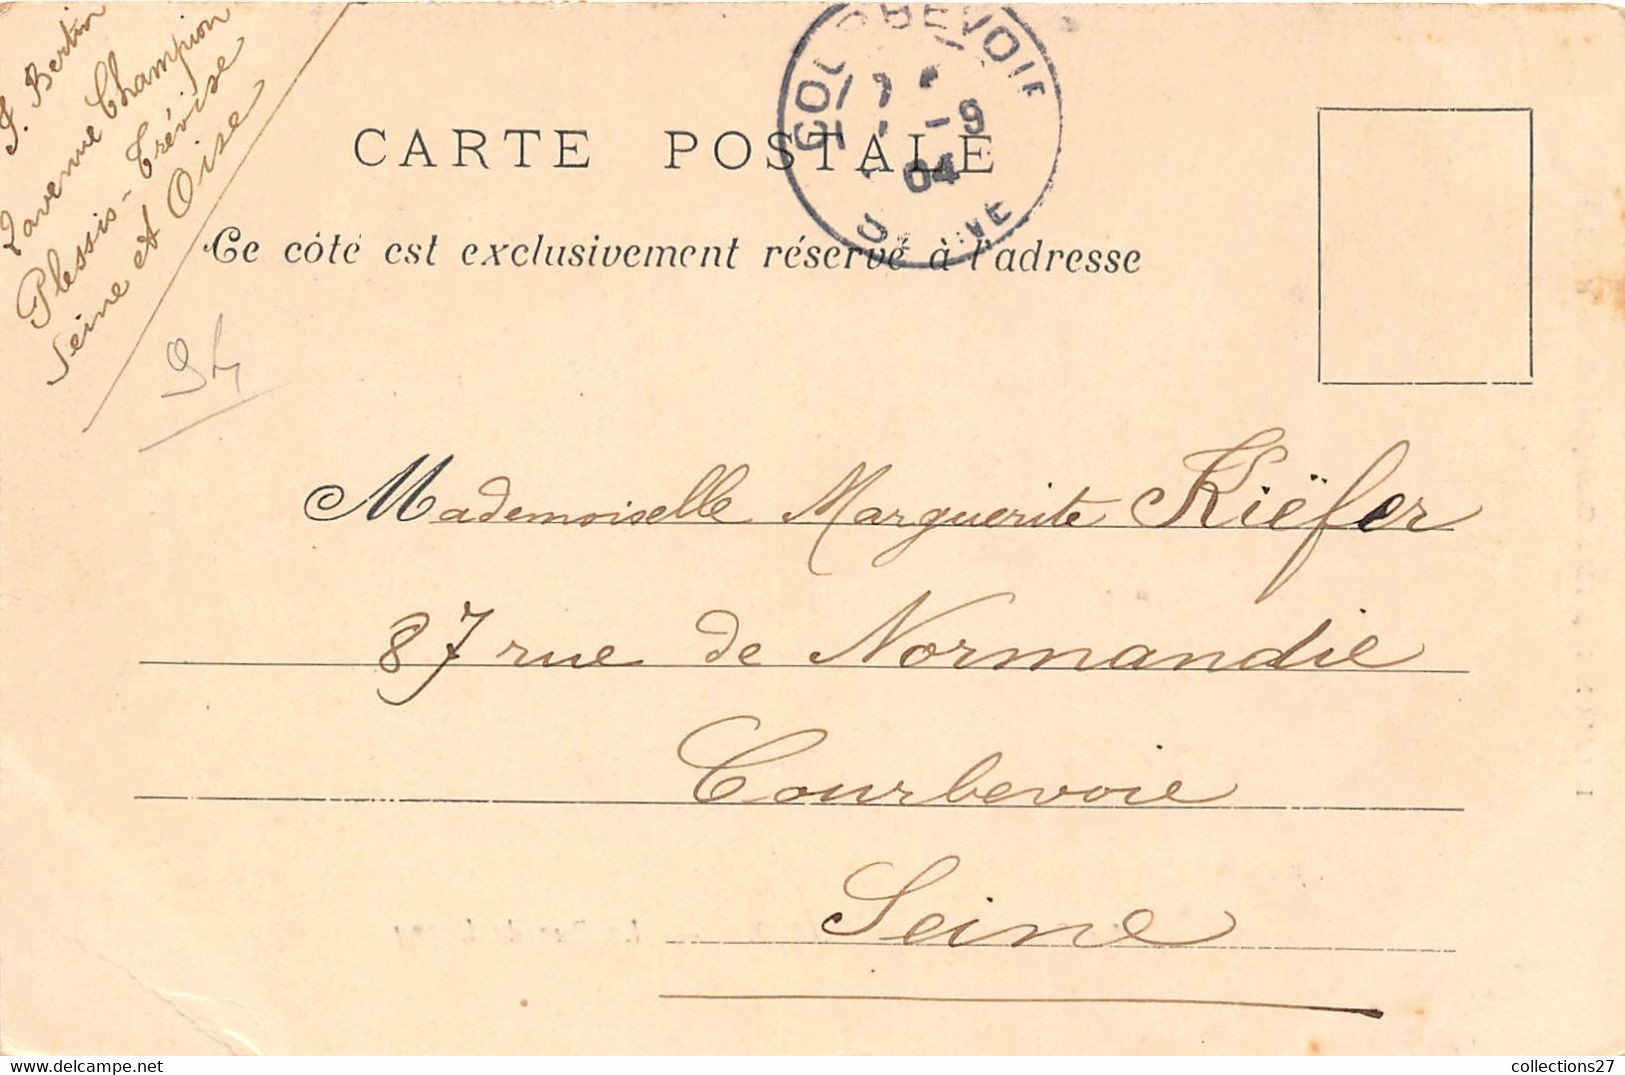 J. Bertin
2 avenue Champion
Plessis-Trévise
Seine et Oise
94
CARTE POSTALE
Ce côté est exclusivement réservé à l'adresse
-9
04
Mademoiselle Marguerite Kiëfer
87 rue de Normandie
Courbevoie
Seine
collections27